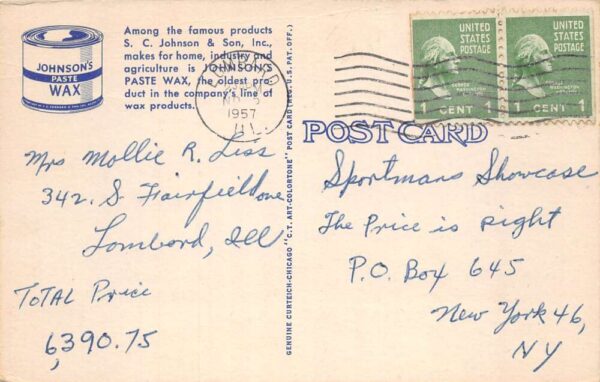 JOHNSON'S
PASTE
WAX
Among the famous products
S. C. Johnson & Son, Inc.,
makes for home, industry and
agriculture is JOHNSON'S
PASTE WAX, the oldest pro-
duct in the company's line of
wax products.
1957
ILL.
UNITED
STATES
POSTAGE
1 CENT 1
UNITED
STATES
POSTAGE
1 CENT 1
POST CARD
GENUINE CURTEICH-CHICAGO "C.T. ART-COLORTONE" POST CARD (REG. U.S. PAT. OFF.)
Mrs Mollie R. Liss
342. S Fairfield ave
Lombard, Ill
Total Price
6,390.75
Sportmans Showcase
The Price is right
P.O. Box 645
New York 46,
NY